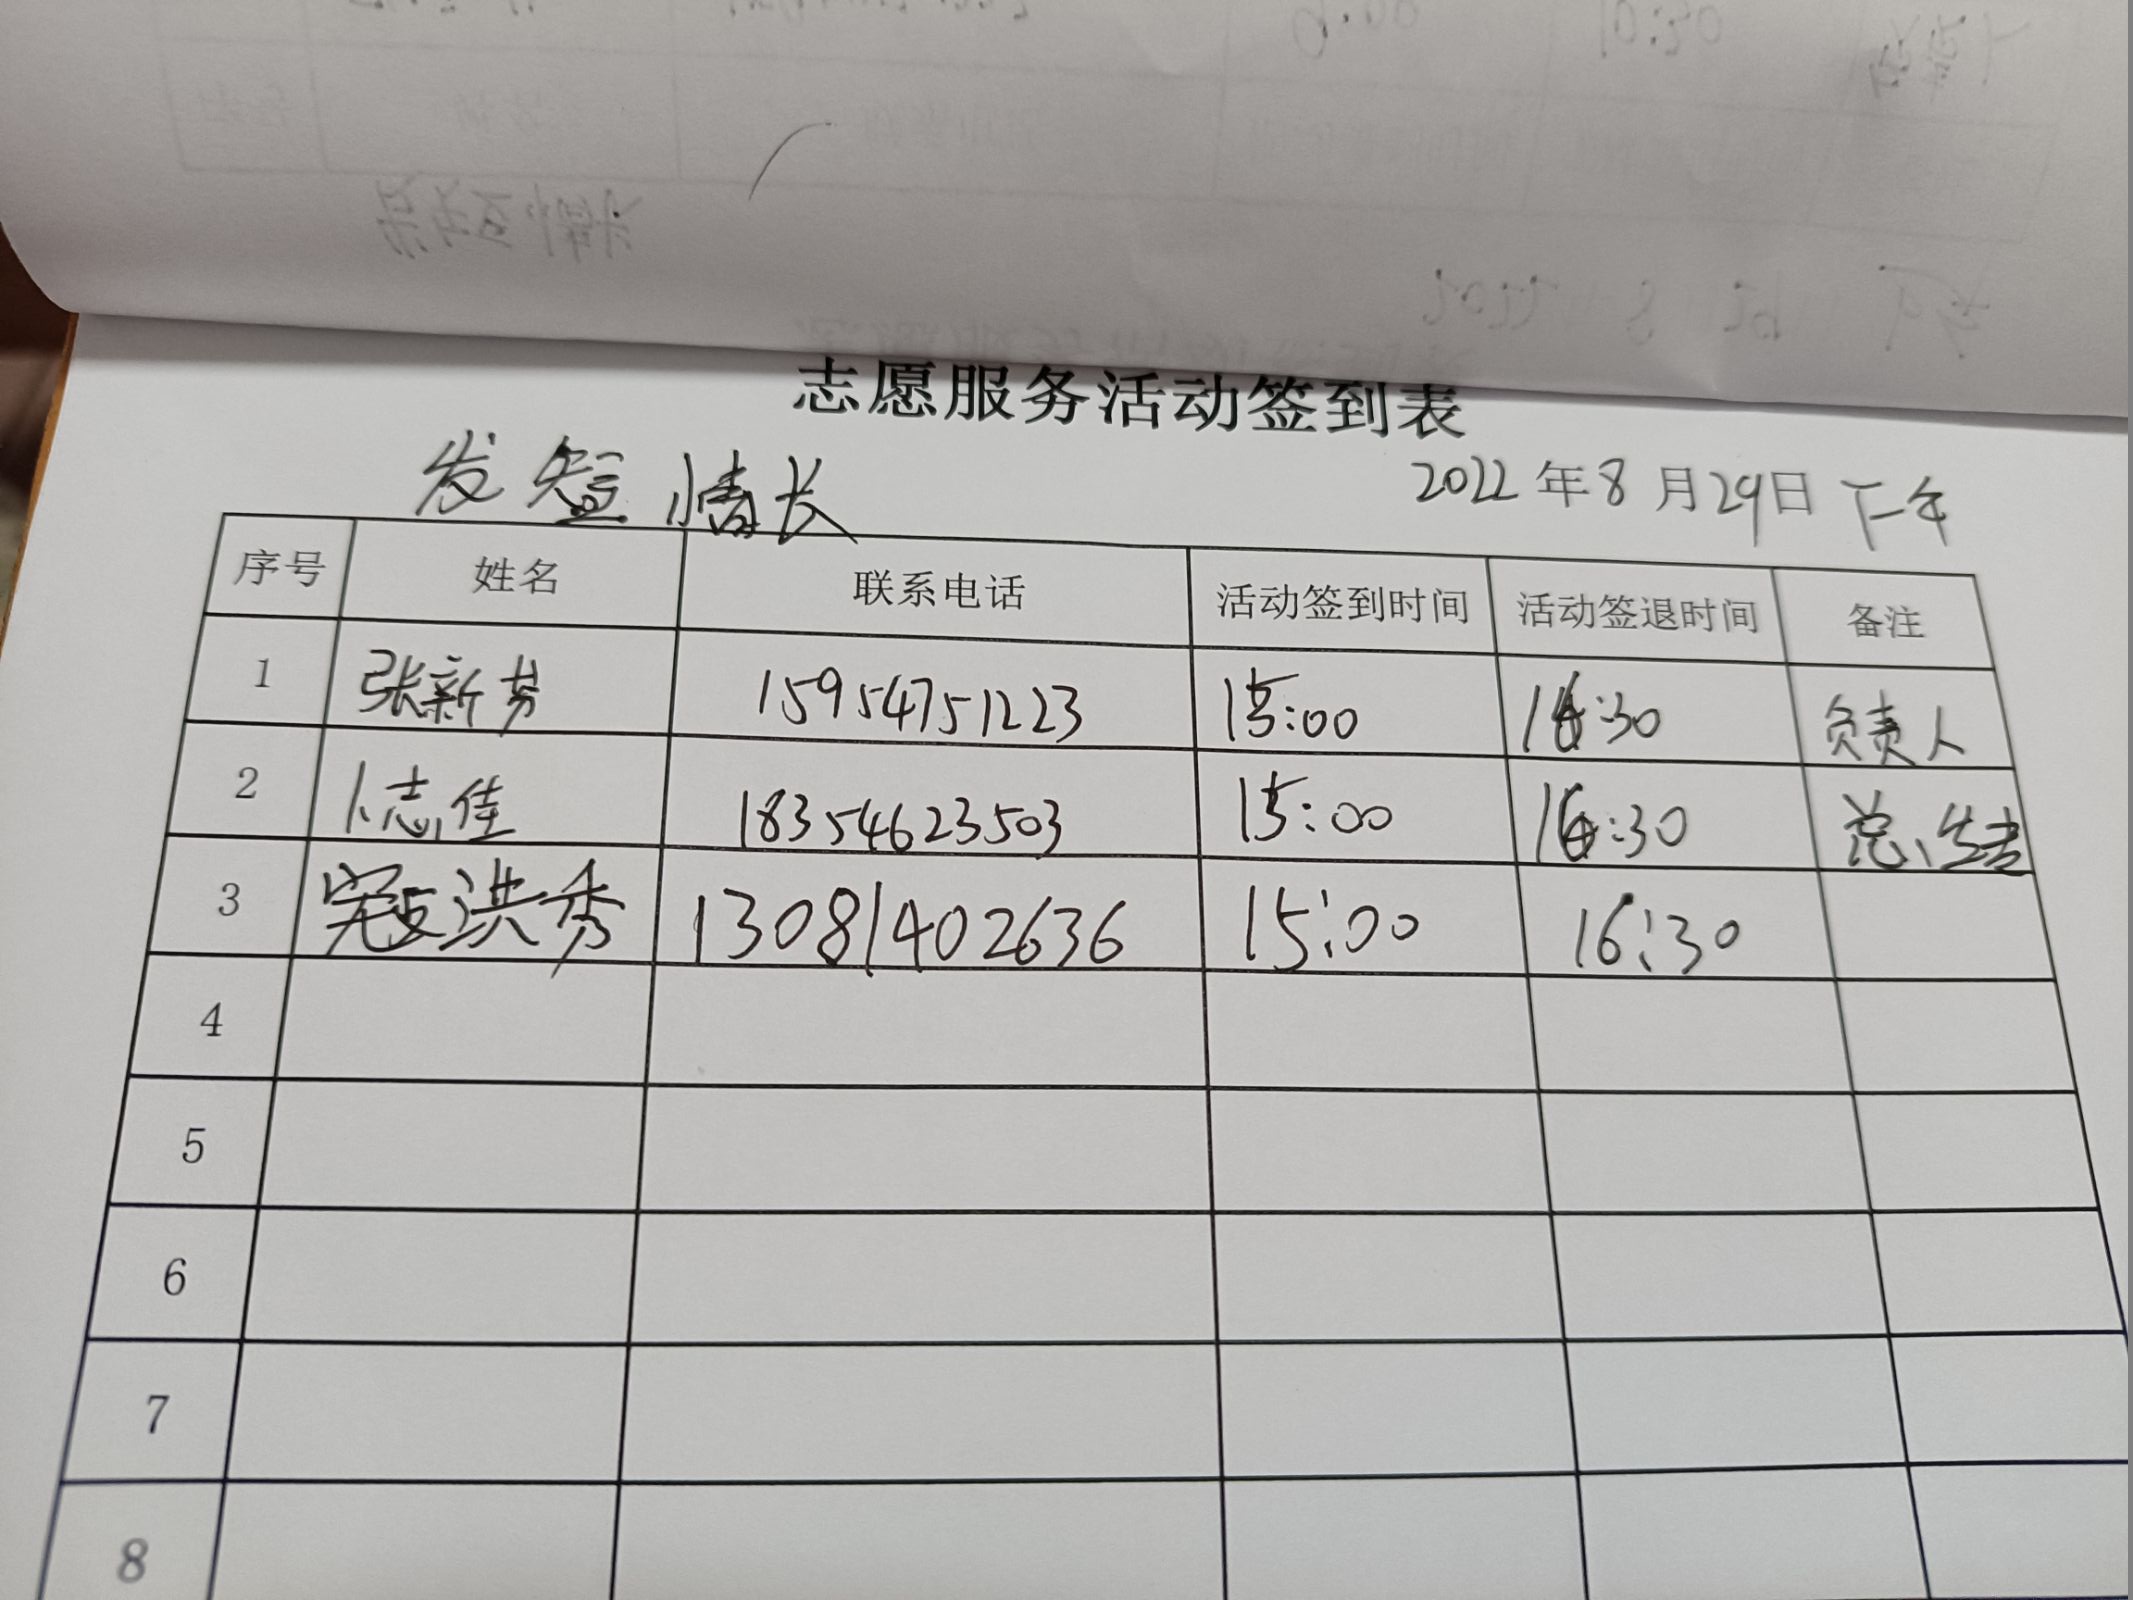 志愿服务活动签到表
发 短 情长
2022 年 8 月 29 日 下午
序号 姓名 联系电话 活动签到时间 活动签退时间 备注
1 张新芳 15954751223 15:00 16:30 负责人
2 卜志佳 18354623503 15:00 16:30
3 寇洪秀 13081402636 15:00 16:30
4
5
6
7
8